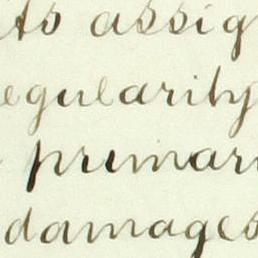 its assig
egularity
primar
damages